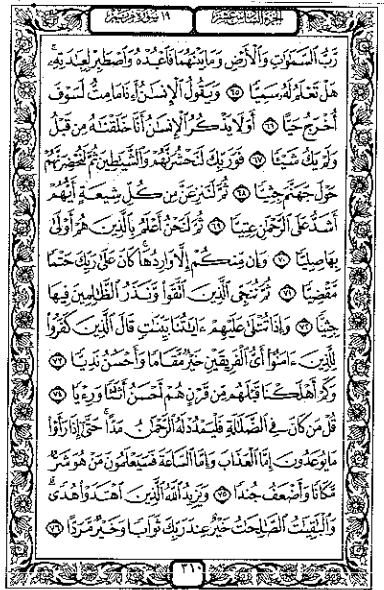 الجزء السادس عشر
١٩ سورة مريم
رَّبُّ السَّمَٰوَٰتِ وَالْأَرْضِ وَمَا بَيْنَهُمَا فَاعْبُدْهُ وَاصْطَبِرْ لِعِبَٰدَتِهِۦ ۚ
هَلْ تَعْلَمُ لَهُۥ سَمِيًّا ٦٥ وَيَقُولُ الْإِنسَٰنُ أَءِذَا مَا مِتُّ لَسَوْفَ
أُخْرَجُ حَيًّا ٦٦ أَوَلَا يَذْكُرُ الْإِنسَٰنُ أَنَّا خَلَقْنَٰهُ مِن قَبْلُ
وَلَمْ يَكُ شَيْـًٔا ٦٧ فَوَرَبِّكَ لَنَحْشُرَنَّهُمْ وَالشَّيَٰطِينَ ثُمَّ لَنُحْضِرَنَّهُمْ
حَوْلَ جَهَنَّمَ جِثِيًّا ٦٨ ثُمَّ لَنَنزِعَنَّ مِن كُلِّ شِيعَةٍ أَيُّهُمْ
أَشَدُّ عَلَى الرَّحْمَٰنِ عِتِيًّا ٦٩ ثُمَّ لَنَحْنُ أَعْلَمُ بِالَّذِينَ هُمْ أَوْلَىٰ
بِهَا صِلِيًّا ٧٠ وَإِن مِّنكُمْ إِلَّا وَارِدُهَا ۚ كَانَ عَلَىٰ رَبِّكَ حَتْمًا
مَّقْضِيًّا ٧١ ثُمَّ نُنَجِّي الَّذِينَ اتَّقَوا وَّنَذَرُ الظَّٰلِمِينَ فِيهَا
جِثِيًّا ٧٢ وَإِذَا تُتْلَىٰ عَلَيْهِمْ ءَايَٰتُنَا بَيِّنَٰتٍ قَالَ الَّذِينَ كَفَرُوا
لِلَّذِينَ ءَامَنُوٓا أَيُّ الْفَرِيقَيْنِ خَيْرٌ مَّقَامًا وَأَحْسَنُ نَدِيًّا ٧٣
وَكَمْ أَهْلَكْنَا قَبْلَهُم مِّن قَرْنٍ هُمْ أَحْسَنُ أَثَٰثًا وَرِءْيًا ٧٤
قُلْ مَن كَانَ فِي الضَّلَٰلَةِ فَلْيَمْدُدْ لَهُ الرَّحْمَٰنُ مَدًّا ۚ حَتَّىٰٓ إِذَا رَأَوْا
مَا يُوعَدُونَ إِمَّا الْعَذَابَ وَإِمَّا السَّاعَةَ فَسَيَعْلَمُونَ مَنْ هُوَ شَرٌّ
مَّكَانًا وَأَضْعَفُ جُندًا ٧٥ وَيَزِيدُ اللَّهُ الَّذِينَ اهْتَدَوْا هُدًى ۗ
وَالْبَٰقِيَٰتُ الصَّٰلِحَٰتُ خَيْرٌ عِندَ رَبِّكَ ثَوَابًا وَخَيْرٌ مَّرَدًّا ٧٦
٣١٠